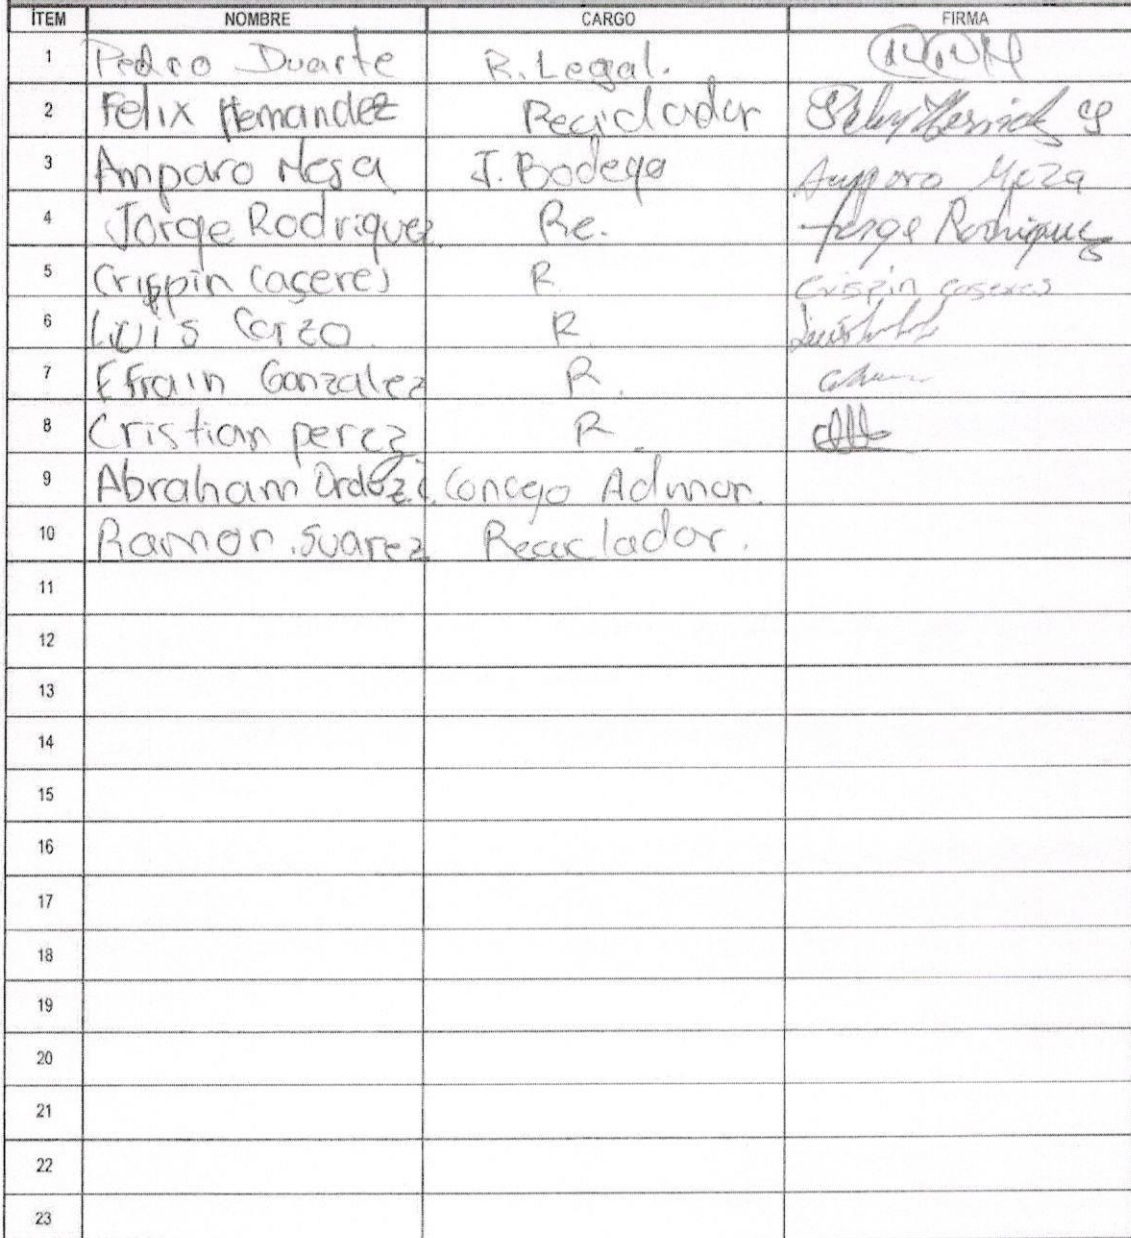 ÍTEM NOMBRE CARGO FIRMA
1 Pedro Duarte R. Legal.
2 Felix Hernandez Reciclador
3 Amparo Mesa J. Bodega Amparo Meza
4 Jorge Rodriguez Re. Jorge Rodriguez
5 Crispin Caceres R Crispin Caseres
6 Luis Corzo R
7 Efrain Gonzalez R.
8 Cristian perez R.
9 Abraham Concejo Admor.
10 Ramon Suarez Reciclador.
11
12
13
14
15
16
17
18
19
20
21
22
23